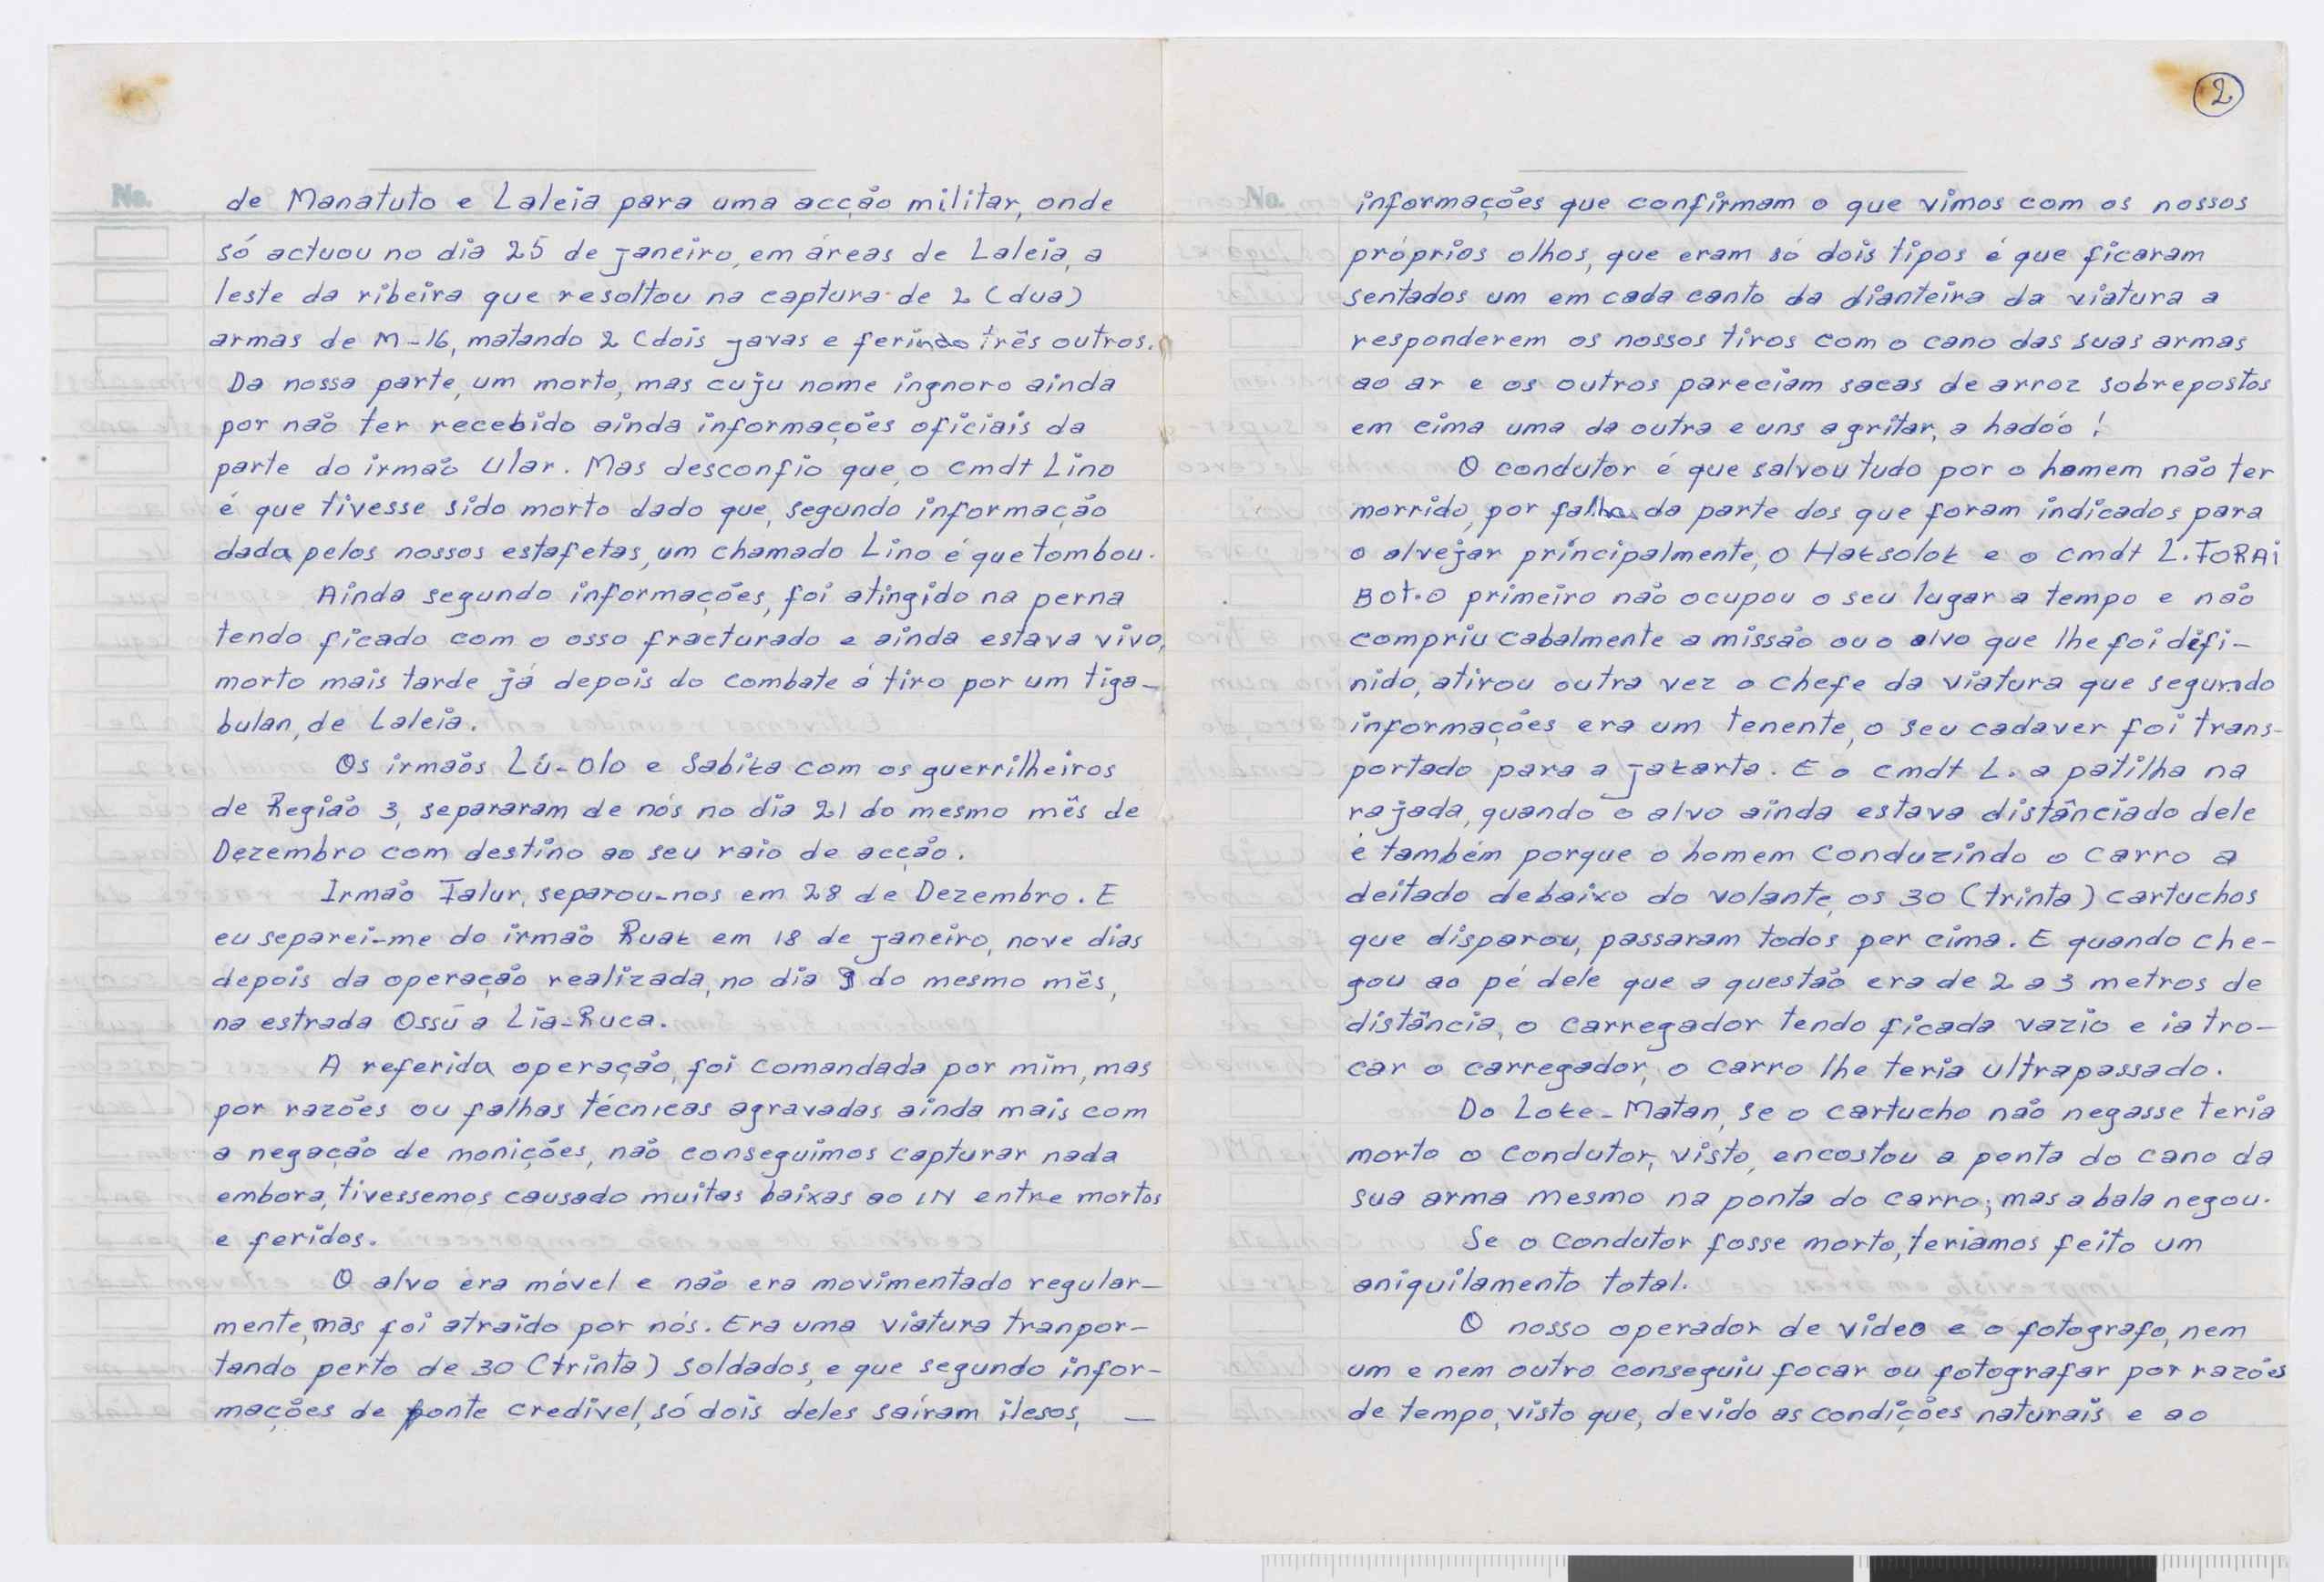 No.
de Manatuto e Laleia para uma acção militar, onde
só actuou no dia 25 de janeiro, em áreas de Laleia, a
leste da ribeira que resoltou na captura de 2 (dua)
armas de M-16, matando 2 (dois javas e ferindo três outros.
Da nossa parte, um morto, mas cuju nome ingnoro ainda
por não ter recebido ainda informações oficiais da
parte do irmão Ular. Mas desconfio que, o cmdt Lino
é que tivesse sido morto dado que, segundo informação
dada pelos nossos estafetas, um chamado Lino é que tombou.
Ainda segundo informações, foi atingido na perna
tendo ficado com o osso fracturado e ainda estava vivo,
morto mais tarde já depois do combate á tiro por um tiga-
bulan, de Laleia.
Os irmãos Lú-Olo e Sabika com os guerrilheiros
de Região 3, separaram de nós no dia 21 do mesmo mês de
Dezembro com destino ao seu raio de acção.
Irmão Falur, separou-nos em 28 de Dezembro. E
eu separei-me do irmão Ruak em 18 de janeiro, nove dias
depois da operação realizada, no dia 9 do mesmo mês,
na estrada Ossú a Lia-Ruca.
A referida operação, foi comandada por mim, mas
por razões ou falhas técnicas agravadas ainda mais com
a negação de monições, não conseguimos capturar nada
embora, tivessemos causado muitas baixas ao IN entre mortos
e feridos.
O alvo era móvel e não era movimentado regular-
mente, mas foi atraído por nós. Era uma viatura tranpor-
tando perto de 30 (trinta) soldados, e que segundo infor-
mações de fonte credivel, só dois deles saíram ilesos, —
2
No.
informações que confirmam o que vimos com os nossos
próprios olhos, que eram só dois tipos é que ficaram
sentados um em cada canto da dianteira da viatura a
responderem os nossos tiros com o cano das suas armas
ao ar e os outros pareciam sacas de arroz sobrepostos
em cima uma da outra e uns a gritar, a hadóó!
O condutor é que salvou tudo por o homem não ter
morrido, por falha da parte dos que foram indicados para
o alvejar principalmente, o Haksolok e o cmdt L. FORAI
BOT. O primeiro não ocupou o seu lugar a tempo e não
compriu cabalmente a missão ou o alvo que lhe foi difi-
nido, atirou outra vez o chefe da viatura que segundo
informações era um tenente, o seu cadaver foi trans-
portado para a jakarta. E o cmdt L. a patilha na
rajada, quando o alvo ainda estava distânciado dele
e também porque o homem conduzindo o carro a
deitado debaixo do volante, os 30 (trinta) cartuchos
que disparou, passaram todos per cima. E quando che-
gou ao pé dele que a questão era de 2 a 3 metros de
distância, o carregador tendo ficada vazio e ia tro-
car o carregador, o carro lhe teria ultrapassado.
Do Loke-Matan, se o cartucho não negasse teria
morto o condutor, visto, encostou a ponta do cano da
sua arma mesmo na ponta do carro; mas a bala negou.
Se o condutor fosse morto, teriamos feito um
aniquilamento total.
O nosso operador de video e o fotografo, nem
um e nem outro conseguiu focar ou fotografar por razões
de tempo, visto que, devido as condições naturais e ao